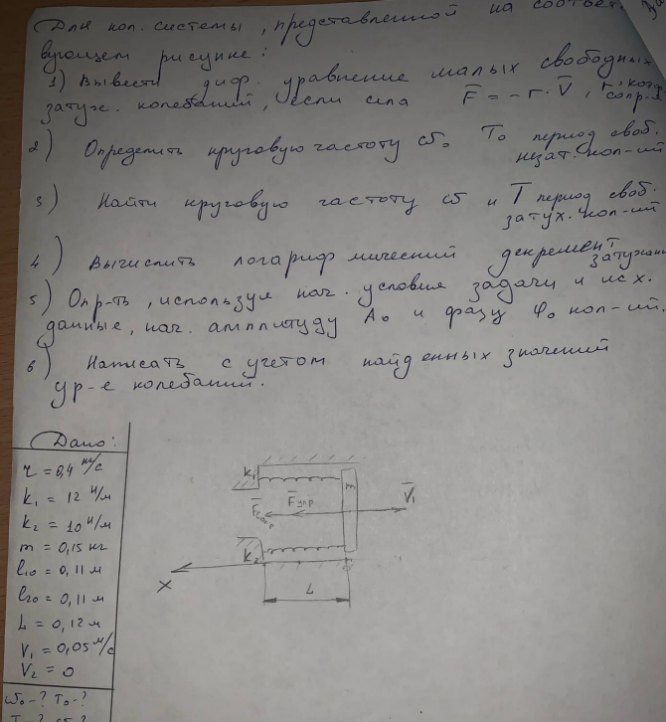 Для кол. системы, представленной на соответ.
вующем рисунке:
1) Вывести диф. уравнение малых свободных
затух. колебаний, если сила F̅ = -r·V̅, r
2) Определить круговую частоту ω₀ T₀ период своб.
незат. кол-ий
3) Найти круговую частоту ω и T период своб.
затух. кол-ий
4) Вычислить логарифмический декремент
затухания
5) Опр-ть, используя нач. условия задачи и исх.
данные, нач. амплитуду A₀ и фазу φ₀ кол-ий.
6) Написать с учетом найденных значений
ур-е колебаний.
Дано:
r = 0,4 кг/с
k₁ = 12 н/м
k₂ = 10 н/м
m = 0,15 кг
l₁₀ = 0,11 м
l₂₀ = 0,11 м
L = 0,12 м
V₁ = 0,05 м/с
V₂ = 0
ω₀-? T₀-?
k₁
m
F̅сопр
F̅упр
V̅₁
k₂
X
L